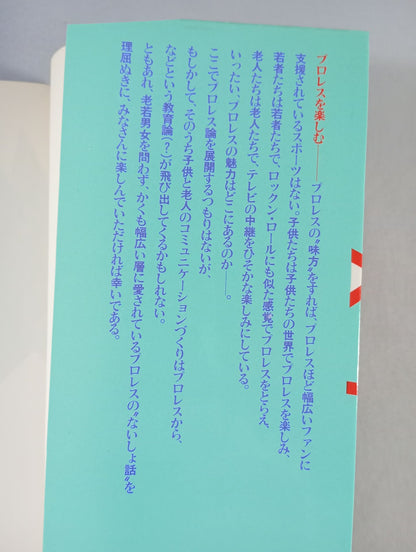 プロレスを楽しむ――プロレスの〝味方〟をすれば、プロレスほど幅広いファンに
支援されているスポーツはない。子供たちは子供たちの世界でプロレスを楽しみ、
若者たちは若者たちで、ロックン・ロールにも似た感覚でプロレスをとらえ、
老人たちは老人たちで、テレビの中継をひそかな楽しみにしている。
いったい、プロレスの魅力はどこにあるのか――。
ここでプロレス論を展開するつもりはないが、
もしかして、そのうち子供と老人のコミュニケーションづくりはプロレスから、
などという教育論(?)が飛び出してくるかもしれない。
ともあれ、老若男女を問わず、かくも幅広い層に愛されているプロレスの〝ないしょ話〟を
理屈ぬきに、みなさんに楽しんでいただければ幸いである。